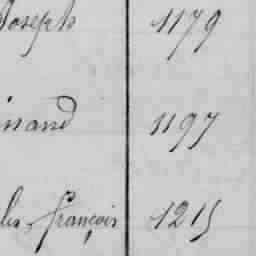 Joseph 1179
inand 1197
les françois 1215